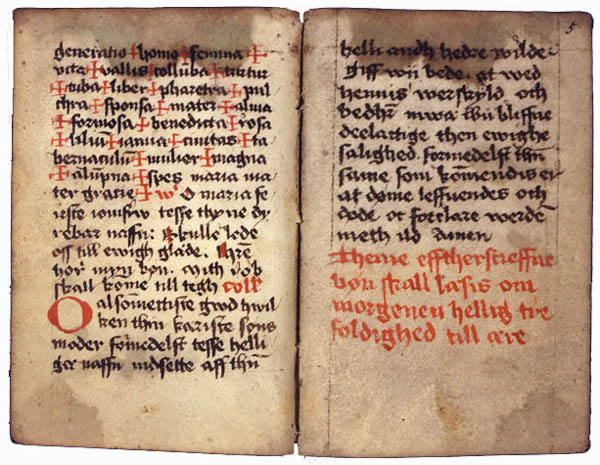 generatio + homo + femina +
vita + vallis colluba + turtur
+ tuba + liber + pharetra + pul
chra + sponsa + mater + alma
+ formosa + benedicta + rosa
+ liliū + ianua + ciuitas + ta
bernaculū + mulier + magna
+ alūpna + spes maria ma
ter gracie + O maria fe
reste iomfrw tesse thyne dy
rebar naffn: skulle lede
oss till ewigh gläde.
hor myn bon. rob
skall kōme till tegh coll'
O alsōmetiste gwd hwil
ken thin käriste søns
moder fomedelst tesse helli
ger naffn indsette aff thin
5
helli andh hedre wilde
giff wii bede at wed
hennis werskyld och
mwa bliffue
deelactige then ewighe
salighed. formedelst
same som komendis er
at dome leffuendes och
dode oc forclare werdē
meth ild Amen
efftherscreffne
bon skall läsis om
morgenen hellig tre
foldighed till ære